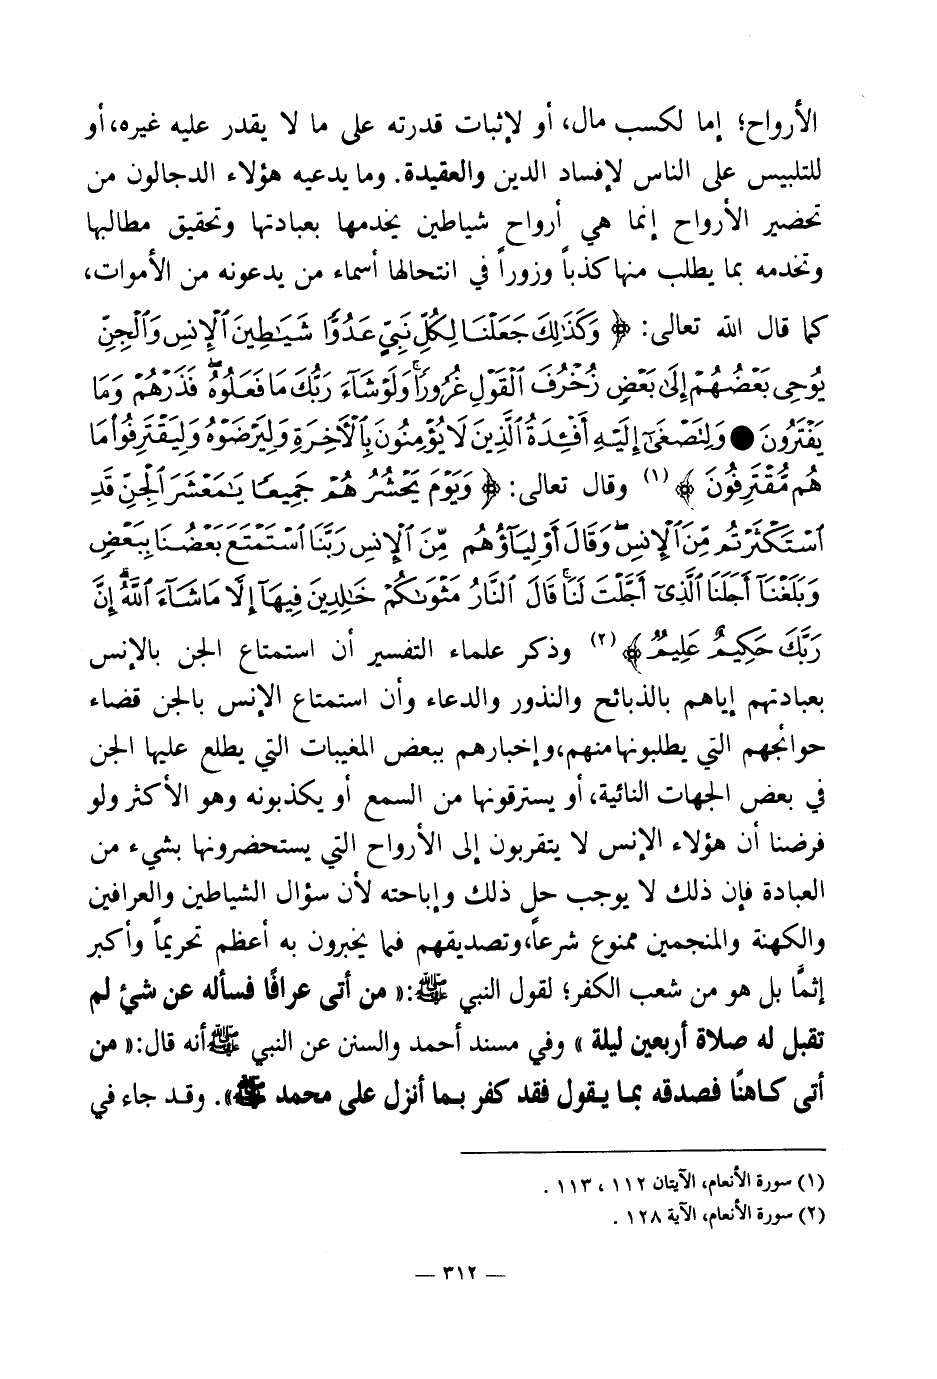 الأرواح؛ إما لكسب مال، أو لإثبات قدرته على ما لا يقدر عليه غيره، أو
للتلبيس على الناس لإفساد الدين والعقيدة. وما يدعيه هؤلاء الدجالون من
تحضير الأرواح إنما هي أرواح شياطين يخدمها بعبادتها وتحقيق مطالبها
وتخدمه بما يطلب منها كذباً وزوراً في انتحالها أسماء من يدعونه من الأموات،
كما قال الله تعالى: ﴿ وَكَذَٰلِكَ جَعَلْنَا لِكُلِّ نَبِيٍّ عَدُوًّا شَيَـٰطِينَ ٱلْإِنسِ وَٱلْجِنِّ
يُوحِى بَعْضُهُمْ إِلَىٰ بَعْضٍ زُخْرُفَ ٱلْقَوْلِ غُرُورًا ۚ وَلَوْ شَآءَ رَبُّكَ مَا فَعَلُوهُ ۖ فَذَرْهُمْ وَمَا
يَفْتَرُونَ ● وَلِتَصْغَىٰٓ إِلَيْهِ أَفْـِٔدَةُ ٱلَّذِينَ لَا يُؤْمِنُونَ بِٱلْـَٔاخِرَةِ وَلِيَرْضَوْهُ وَلِيَقْتَرِفُوا۟ مَا
هُم مُّقْتَرِفُونَ ﴾ (١) وقال تعالى: ﴿ وَيَوْمَ يَحْشُرُهُمْ جَمِيعًا يَـٰمَعْشَرَ ٱلْجِنِّ قَدِ
ٱسْتَكْثَرْتُم مِّنَ ٱلْإِنسِ ۖ وَقَالَ أَوْلِيَآؤُهُم مِّنَ ٱلْإِنسِ رَبَّنَا ٱسْتَمْتَعَ بَعْضُنَا بِبَعْضٍ
وَبَلَغْنَآ أَجَلَنَا ٱلَّذِىٓ أَجَّلْتَ لَنَا ۚ قَالَ ٱلنَّارُ مَثْوَىٰكُمْ خَـٰلِدِينَ فِيهَآ إِلَّا مَا شَآءَ ٱللَّهُ ۗ إِنَّ
رَبَّكَ حَكِيمٌ عَلِيمٌ ﴾ (٢) وذكر علماء التفسير أن استمتاع الجن بالإنس
بعبادتهم إياهم بالذبائح والنذور والدعاء وأن استمتاع الإنس بالجن قضاء
حوائجهم التي يطلبونها منهم، وإخبارهم ببعض المغيبات التي يطلع عليها الجن
في بعض الجهات النائية، أو يسترقونها من السمع أو يكذبونه وهو الأكثر ولو
فرضنا أن هؤلاء الإنس لا يتقربون إلى الأرواح التي يستحضرونها بشيء من
العبادة فإن ذلك لا يوجب حل ذلك وإباحته لأن سؤال الشياطين والعرافين
والكهنة والمنجمين ممنوع شرعاً، وتصديقهم فيما يخبرون به أعظم تحريماً وأكبر
إثمًا بل هو من شعب الكفر؛ لقول النبي ﷺ: « من أتى عرافًا فسأله عن شئ لم
تقبل له صلاة أربعين ليلة » وفي مسند أحمد والسنن عن النبي ﷺ أنه قال: « من
أتى كاهنًا فصدقه بما يقول فقد كفر بما أنزل على محمد ﷺ». وقد جاء في
(١) سورة الأنعام، الآيتان ١١٢ ، ١١٣ .
(٢) سورة الأنعام، الآية ١٢٨ .
— ٣١٢ —